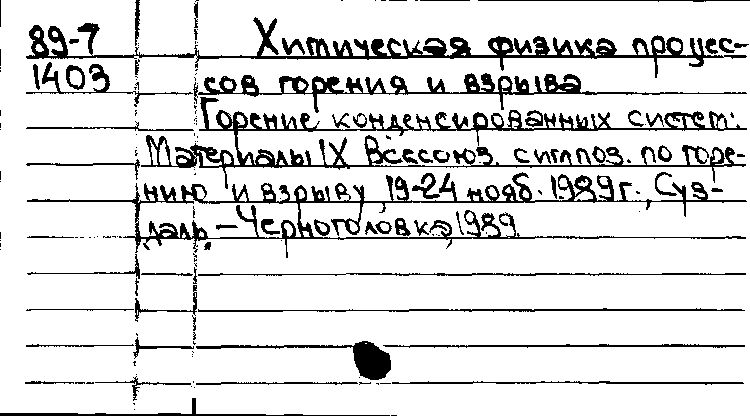 89-7 Химическая физика процес-
1403 сов горения и взрыва
Горение конденсированных систем:
Материалы IX Всесоюз. симпоз. по горе-
нию и взрыву, 19-24 нояб. 1989 г., Суз-
даль. - Черноголовка, 1989.